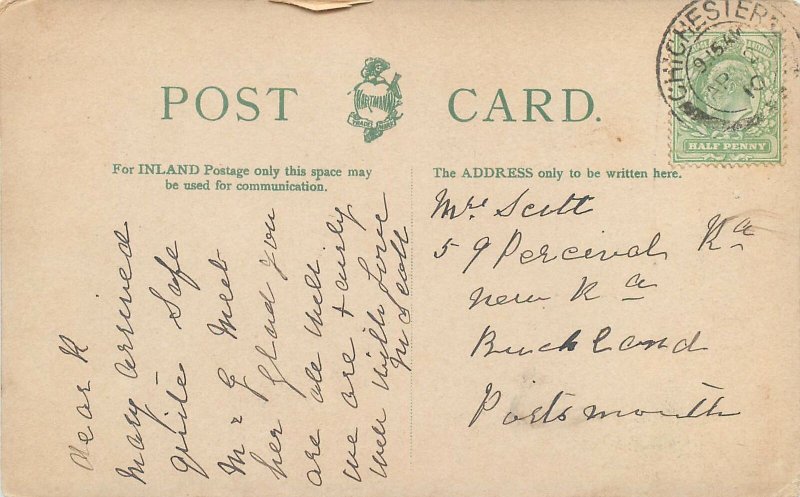 POST CARD.
HARTMANN
TRADE MARK
CHICHESTER
9.15 AM
AP
10
HALF PENNY
For INLAND Postage only this space may
be used for communication.
The ADDRESS only to be written here.
Dear K
Mary arrived
quite safe
Mr G Meet
her glad you
are all well
we are fairly
well with Love
M Scott
Mrs Scott
59 Percival Rd
New Rd
Buckland
Portsmouth